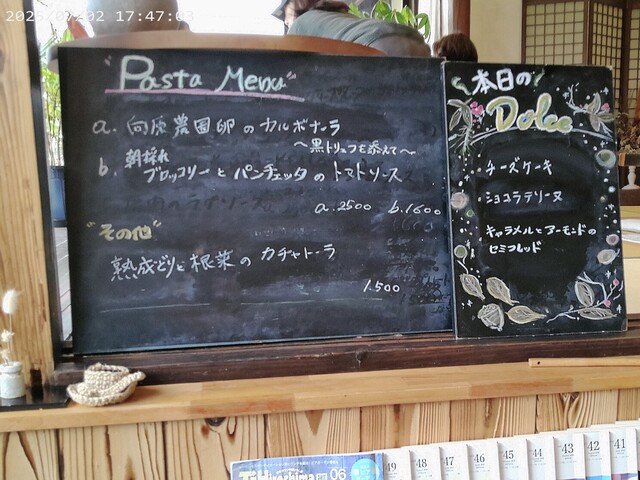 17:47:03
"Pasta Menu"
a. 向原農園卵のカルボナーラ
〜黒トリュフを添えて〜
b. 朝採れ
ブロッコリーとパンチェッタのトマトソース
a.2500 b.1600
"その他"
熟成どりと根菜のカチャトーラ
1.500
本日の
Dolce
チーズケーキ
ショコラテリーヌ
キャラメルとアーモンドの
セミフレッド
Hiroshima 06
49 48 47 46 45 44 43 42 41